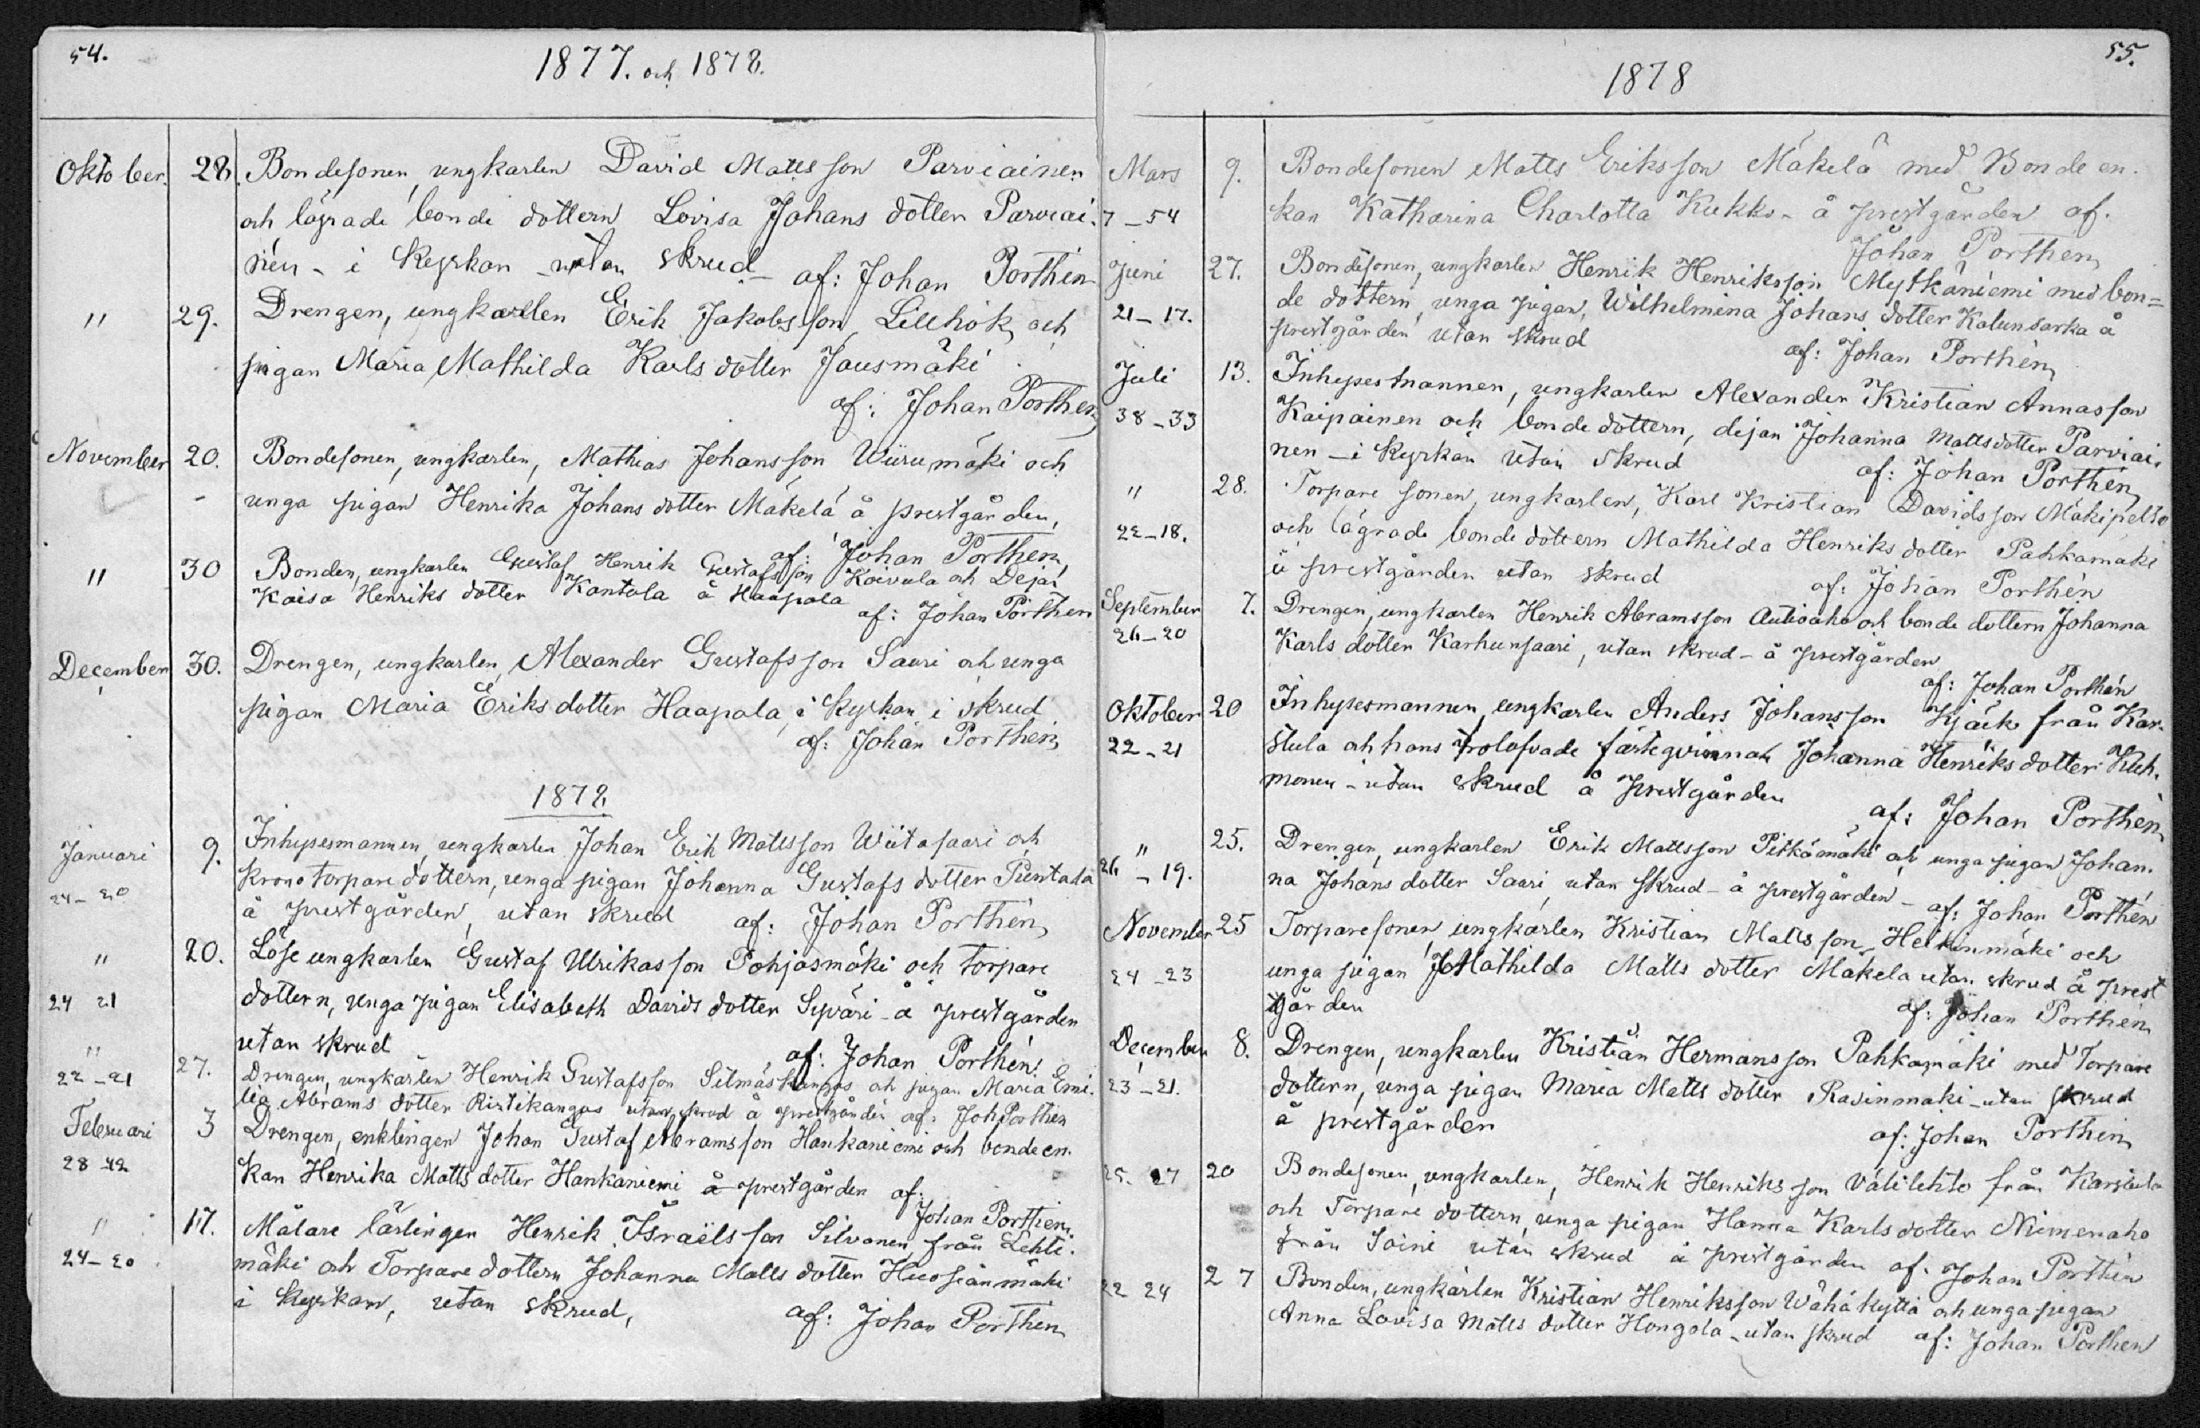 54.
1877. och 1878.
Oktober. 28. Bondesonen, ungkarlen David Matts son Parviainen
och lägrade bonde dottern Lovisa Johans dotter Parviai-
nen - i Kyrkan utan skrud - af: Johan Porthén
" 29. Drengen, ungkarlen Erik Jakobsson Lillhök och
pigan Maria Mathilda Karls dotter Jausmäki
af: Johan Porthén
November 20. Bondesonen, ungkarlen, Mathias Johansson Wiirumäki och
unga pigan Henrika Johans dotter Mäkelä å prestgården,
af: Johan Porthén
" 30 Bonden, ungkarlen Gustaf Henrik Gustafsson Koivula och Dejan
Kaisa Henriks dotter Kantola å Haapala
af: Johan Porthén
December 30. Drengen, ungkarlen, Alexander Gustafsson Saari och unga
pigan Maria Eriks dotter Haapala, i Kyrkan i skrud
af: Johan Porthén
1878.
Januari 9. Inhysesmannen, ungkarlen Johan Erik Mattsson Wiitasaari och
24-20 Krono torpare dottern, unga pigan Johanna Gustafs dotter Puntala
å prestgården, utan skrud af: Johan Porthén
" 20. Löse ungkarlen Gustaf Ulrikasson Pohjasmäki och torpare
24 21 dottern, unga pigan Elisabeth Davids dotter Syväri - å prestgården
utan skrud af: Johan Porthén
" 27. Drengen, ungkarlen Henrik Gustafsson Silmäskangas och pigan Maria Emi-
22-21 lia Abrams dotter Ristikangas utan skrud å prestgården af: Joh Porthén
Februari 3 Drengen, enklingen Johan Gustaf Abramsson Hankaniemi och bonde en-
28-42 kan Henrika Matts dotter Hankaniemi å prestgården af:
Johan Porthén
" 17. Målare lärlingen Henrik Israëls son Silvonen från Lehti-
24-20 mäki och Torpare dottern Johanna Matts dotter Huosianmäki
i Kyrkan, utan skrud, af: Johan Porthén
55.
1878
Mars 9. Bondesonen Matts Eriksson Mäkelä med Bonde en-
7-54 kan Katharina Charlotta Kukko - å prestgården af.
Johan Porthén
Juni 27. Bondesonen, ungkarlen Henrik Henriksson Mytkäniemi med bon=
21-17. de dottern, unga pigan, Wilhelmina Johans dotter Kalunsarka å
prestgården utan skrud
af: Johan Porthén
Juli 13. Inhysesmannen, ungkarlen Alexander Kristian Annasson
38-33 Kaipainen och bonde dottern, dejan Johanna Mattsdotter Parviai-
nen - i Kyrkan utan skrud
af: Johan Porthén
" 28. Torpare sonen, ungkarlen, Karl Kristian Davidsson Mäkipelto
22-18. och lägrade bonde dottern Mathilda Henriks dotter Pahkamäki
å prestgården utan skrud
af: Johan Porthén
September 7. Drengen, ungkarlen Henrik Abramsson Autioaho och bonde dottern Johanna
26-20 Karls dotter Karhunsaari, utan skrud - å prestgården
af: Johan Porthén
Oktober 20 Inhysesmannen, ungkarlen Anders Johansson Kjäck från Kar-
22-21 stula och hans trolofvade fästeqvinna Johanna Henriks dotter Kuh-
monen - utan skrud å prestgården
af: Johan Porthén
" 25. Drengen, ungkarlen Erik Mattsson Pitkämäki och unga pigan Johan-
26-19. na Johans dotter Saari, utan skrud - å prestgården - af: Johan Porthén
November 25 Torparesonen, ungkarlen Kristian Matts son Heikinmäki och
24-23 unga pigan Mathilda Matts dotter Mäkelä utan skrud å prest
gården
af: Johan Porthén
December 8. Drengen, ungkarlen Kristian Hermansson Pahkamäki med Torpare
23-21. dottern, unga pigan Maria Matts dotter Rasinmäki - utan skrud
å prestgården
af: Johan Porthén
25. 27 20 Bondesonen, ungkarlen, Henrik Henriks son Välilehto från Karstula
och Torpare dottern, unga pigan Hanna Karls dotter Niemenaho
från Soini utan skrud å prestgården af: Johan Porthén
22 24 27 Bonden, ungkarlen Kristian Henriksson Wähäkyttä och unga pigan
Anna Lovisa Matts dotter Hongola - utan skrud af: Johan Porthén